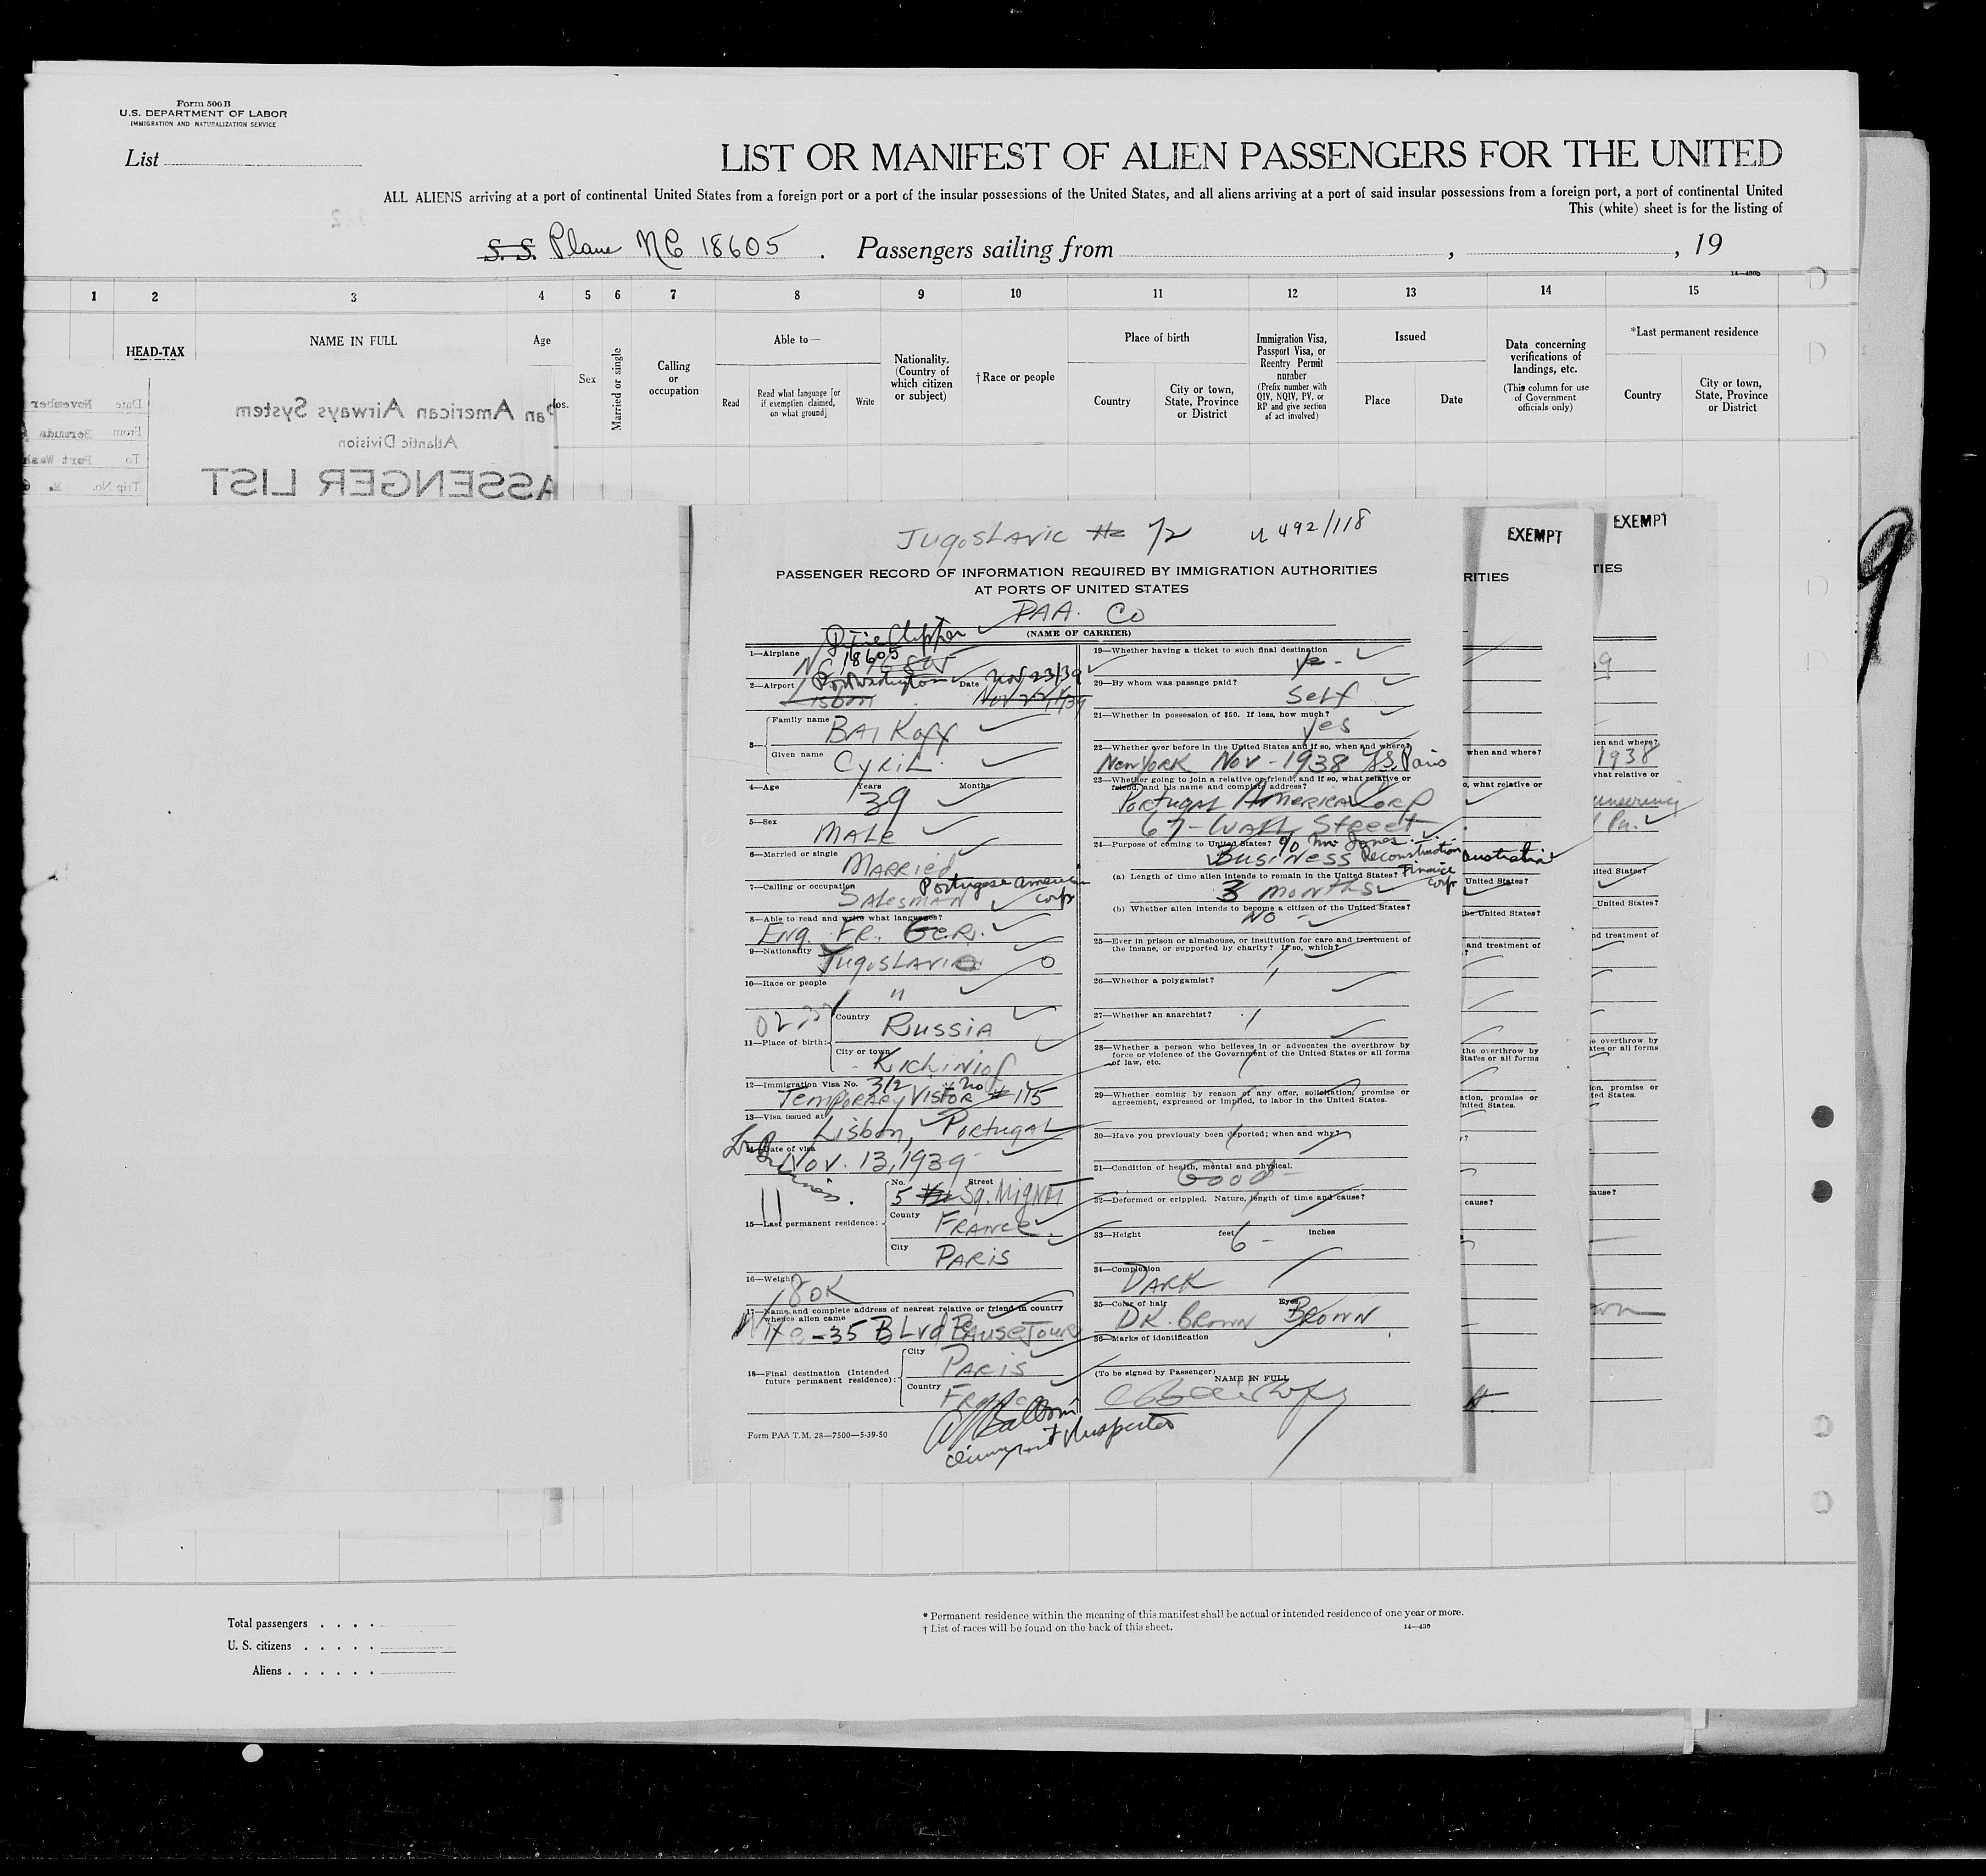 Form 500 B
U.S. DEPARTMENT OF LABOR
IMMIGRATION AND NATURALIZATION SERVICE
List
LIST OR MANIFEST OF ALIEN PASSENGERS FOR THE UNITED
ALL ALIENS arriving at a port of continental United States from a foreign port or a port of the insular possessions of the United States, and all aliens arriving at a port of said insular possessions from a foreign port, a port of continental United
This (white) sheet is for the listing of
S. S. Plane NC 18605 . Passengers sailing from , , 19
1 2 3 4 5 6 7 8 9 10 11 12 13 14 15
HEAD-TAX
NAME IN FULL
Age
Sex
Married or single
Calling or occupation
Able to—
Read
Read what language [or if exemption claimed, on what ground]
Write
Nationality. (Country of which citizen or subject)
† Race or people
Place of birth
Country
City or town, State, Province or District
Immigration Visa, Passport Visa, or Reentry Permit number
(Prefix number with QIV, NQIV, PV, or RP and give section of act involved)
Issued
Place
Date
Data concerning verifications of landings, etc.
(This column for use of Government officials only)
*Last permanent residence
Country
City or town, State, Province or District
Pan American Airways System
Atlantic Division
ASSENGER LIST
Date November
From Bermuda
To Port Wash
Trip No.
JUGOSLAVIC 72 492/118
PASSENGER RECORD OF INFORMATION REQUIRED BY IMMIGRATION AUTHORITIES
AT PORTS OF UNITED STATES
PAA. Co
(NAME OF CARRIER)
Dixie Clipper
1—Airplane NC 18605
2—Airport Port Washington Date Nov 23/39
Lisbon Nov 22/1939
3— Family name BAIKOFF
Given name CYRIL
4—Age Years Months 39
5—Sex MALE
6—Married or single MARRIED
7—Calling or occupation SALESMAN Portugese American Corp
8—Able to read and write what languages? ENG. FR. GER.
9—Nationality JUGOSLAVIA
10—Race or people "
11—Place of birth: Country RUSSIA
City or town KICHINIOF
12—Immigration Visa No. 312
TEMPORARY VISTOR # 115
13—Visa issued at LISBON, PORTUGAL
14—Date of visa NOV. 13, 1939
15—Last permanent residence: No. Street 5 SQ. MIGNOT
County FRANCE
City PARIS
16—Weight 80K
17—Name and complete address of nearest relative or friend in country whence alien came
35 BLVD BAUSEJOUR
18—Final destination (Intended future permanent residence): City PARIS
Country FRANCE
Form PAA T.M. 28—7500—5-39-50
Immigrant Inspector
19—Whether having a ticket to such final destination Yes
20—By whom was passage paid? SELF
21—Whether in possession of $50. If less, how much? Yes
22—Whether ever before in the United States and if so, when and where?
NEW YORK NOV - 1938 S.S. Paris
23—Whether going to join a relative or friend; and if so, what relative or friend, and his name and complete address?
PORTUGAL AMERICA CORP
67 - WALL STREET
24—Purpose of coming to United States? % Mr Jones
BUSINESS Reconstruction Finance Corp
(a) Length of time alien intends to remain in the United States?
3 MONTHS
(b) Whether alien intends to become a citizen of the United States?
NO
25—Ever in prison or almshouse, or institution for care and treatment of the insane, or supported by charity? If so, which?
26—Whether a polygamist?
27—Whether an anarchist?
28—Whether a person who believes in or advocates the overthrow by force or violence of the Government of the United States or all forms of law, etc.
29—Whether coming by reason of any offer, solicitation, promise or agreement, expressed or implied, to labor in the United States.
30—Have you previously been deported; when and why?
31—Condition of health, mental and physical.
GOOD
32—Deformed or crippled. Nature, length of time and cause?
33—Height feet 6 - inches
34—Complexion DARK
35—Color of hair DK. BROWN Eyes BROWN
36—Marks of identification
(To be signed by Passenger)
NAME IN FULL
EXEMPT
RITIES
when and where?
o, what relative or
Australia
United States?
the United States?
and treatment of
the overthrow by
States or all forms
ation, promise or
United States.
cause?
EXEMPT
TIES
en and where?
1938
what relative or
Pa.
ited States?
United States?
nd treatment of
e overthrow by
ates or all forms
ion, promise or
ted States.
ause?
Total passengers . . . .
U. S. citizens . . . . .
Aliens . . . . . .
* Permanent residence within the meaning of this manifest shall be actual or intended residence of one year or more.
† List of races will be found on the back of this sheet.
14—430